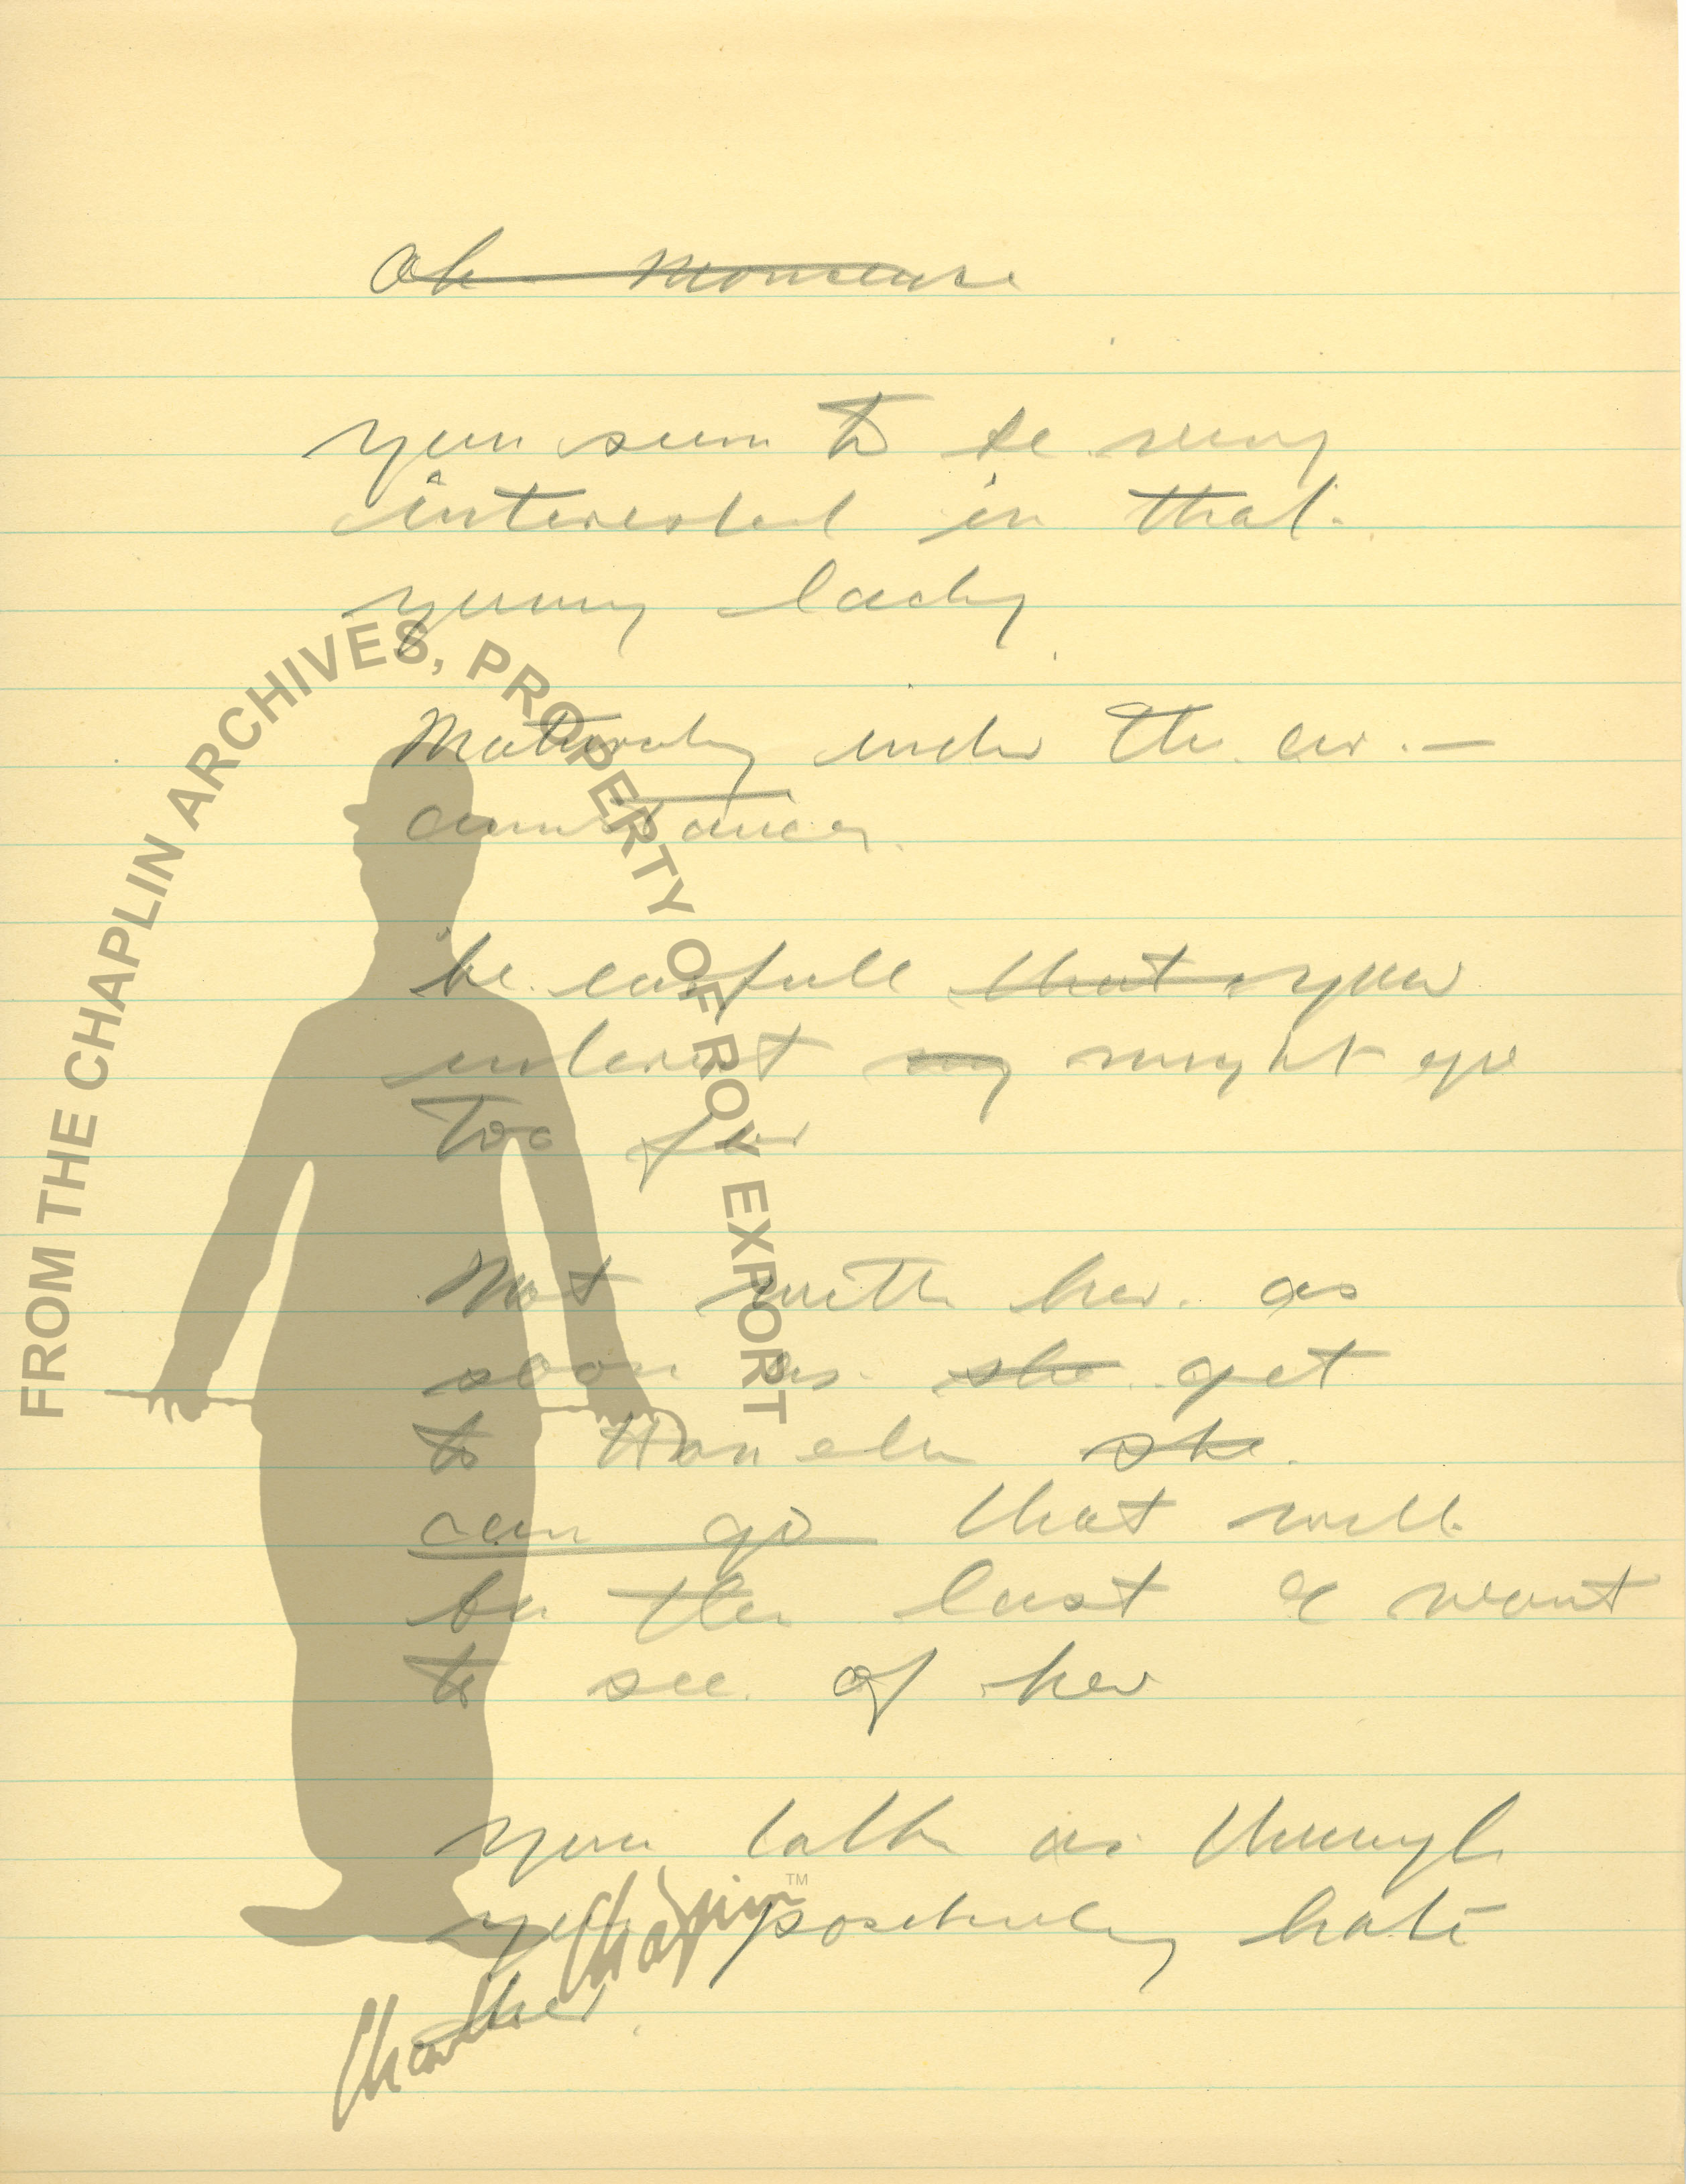 Oh Nonsense
you seem to be very
interested in that
young lady
FROM THE CHAPLIN ARCHIVES, PROPERTY OF ROY EXPORT
Naturaly under the cir -
cumstances.
be carfull that your
interest may might go
too far
Not with her. as
soon as she get
to she
can go that will
be the last I want
to see of her
you talk as though
you hate
her
Charlie Chaplin™